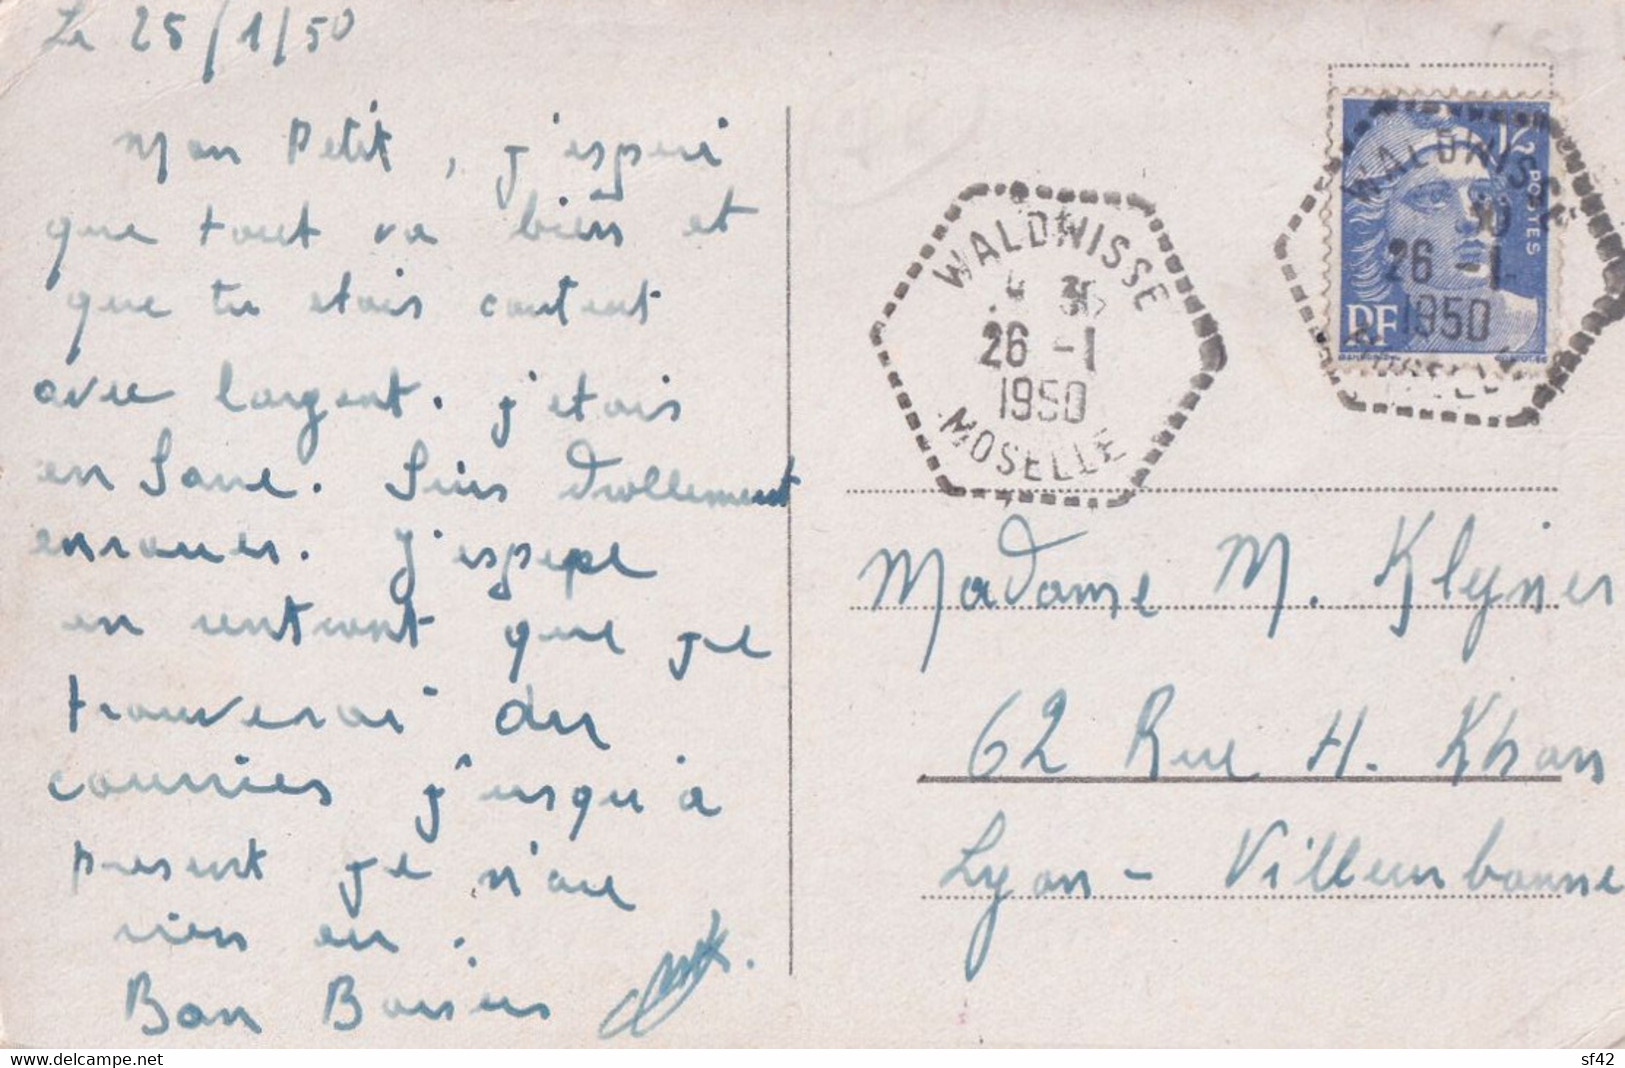 Le 25/1/50
Mon Petit, j'espere
que tout va bien et
que tu etais content
avec largent. j'etais
en Sare. Suis drollement
enroues. J'espepe
en rentrant que je
trouverai du
courries j'usqu'à
present je n'ai
rien eu.
Bon Baisers
WALDWISSE
30
26 -1
1950
MOSELLE
WALDWISSE
30
26 -1
1950
MOSELLE
12
POSTES
RF
Madame M. Klejner
62 Rue H. Khan
Lyon - Villeurbanne
www.delcampe.net
sf42